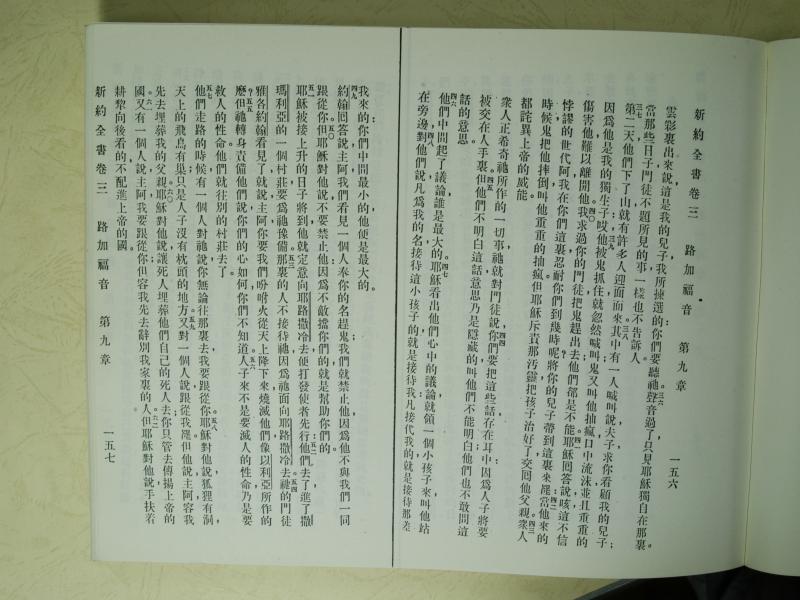 新約全書卷三 路加福音 第九章 一五六
雲彩裏出來說這是我的兒子我所揀選的你們要聽祂。三六聲音過了只見耶穌獨自在那裏。
當那些日子門徒不題所見的事一樣也不告訴人。
三七第二天他們下了山就有許多人迎面而來。三八其中有一人喊叫說夫子求你看顧我的兒子；
因爲他是我的獨生子；三九哎他被鬼抓住就忽然喊叫鬼又叫他抽瘋口中流沫並且重重的
傷害他難以離開他。四〇我求過你的門徒把鬼趕出去他們却是不能。四一耶穌囘答說咳這不信
悖謬的世代阿我在你們這裏忍耐你們到幾時呢將你的兒子帶到這裏來罷。四二當他來的
時候鬼把他摔倒叫他重重的抽瘋但耶穌斥責那汚靈把孩子治好了交囘他父親。四三衆人
都詫異上帝的威能。
衆人正希奇祂所作的一切事祂就對門徒說四四你們要把這些話存在耳中因爲人子將要
被交在人手裏。四五但他們不明白這話意思乃是隱藏的叫他們不能明白他們也不敢問這
話的意思。
四六他們中間起了議論誰是最大的。四七耶穌看出他們心中的議論就領一個小孩子來叫他站
在旁邊四八對他們說凡爲我的名接待這小孩子的就是接待我凡接代我的就是接待那差
我來的你們中間最小的他便是最大的。
四九約翰囘答說主阿我們看見一個人奉你的名趕鬼我們就禁止他因爲他不與我們一同
跟從你。五〇但耶穌對他說不要禁止他因爲不敵擋你們的就是幫助你們的。
五一耶穌被接上升的日子將到他就定意向耶路撒冷去；五二便打發使者先行他們去了進了撒
瑪利亞的一個村莊要爲祂豫備。五三那裏的人不接待祂因爲祂面向耶路撒冷去。五四祂的門徒
雅各約翰看見了就說主阿你要我們吩咐火從天上降下來燒滅他們像以利亞所作的
麽？五五但祂轉身責備他們說你們的心如何你們不知道。五六人子來不是要滅人的性命乃是要
救人的性命他們就往別的村莊去了。
五七他們走路的時候有一個人對祂說你無論往那裏去我要跟從你。五八耶穌對他說狐狸有洞
天上的飛鳥有巢只是人子沒有枕頭的地方。五九又對一個人說跟從我罷但他說主阿容我
先去埋葬我的父親。六〇耶穌對他說讓死人埋葬他們自己的死人去你只管去傳揚上帝的
國。六一又有一個人說主阿我要跟從你但容我先去辭別我家裏的人。六二但耶穌對他說手扶着
耕犂向後看的不配進上帝的國。
新約全書卷三 路加福音 第九章 一五七